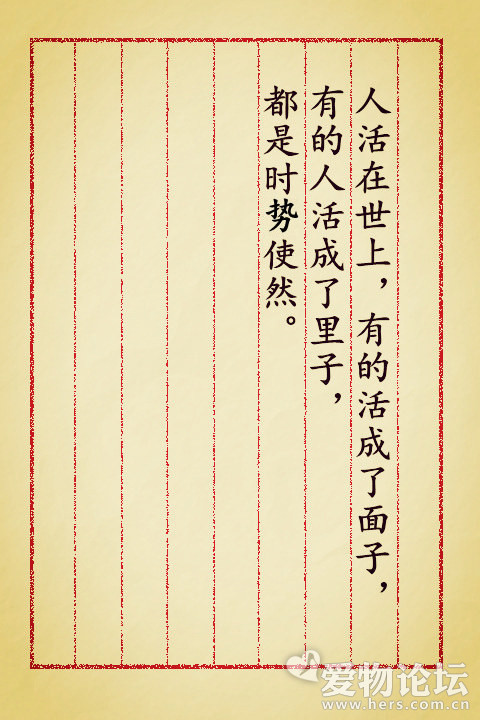 人活在世上，有的活成了面子，
有的人活成了里子，
都是时势使然。
爱物论坛
www.hers.com.cn